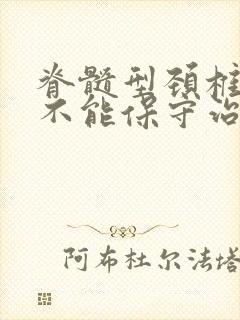 脊髓型颈椎
不能保守治
阿布杜尔法塔